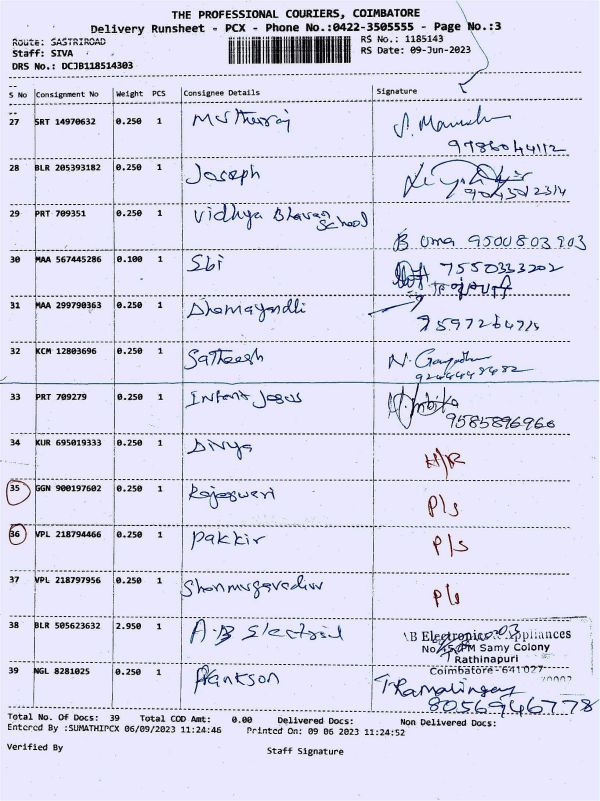 THE PROFESSIONAL COURIERS, COIMBATORE
Delivery Runsheet - PCX - Phone No.:0422-3505555 - Page No.:3
Route: SASTRIROAD
RS No.: 1185143
Staff: SIVA
RS Date: 09-Jun-2023
DRS No.: DCJB118514303
S No Consignment No Weight PCS Consignee Details Signature
27 SRT 14970632 0.250 1
9786044112
28 BLR 205393182 0.250 1 Joseph
29 PRT 709351 0.250 1 Vidhya Bhavan School
B Uma 9500803903
30 MAA 567445286 0.100 1 Sbi
7550333202
31 MAA 299790363 0.250 1
32 KCM 12803696 0.250 1 Satheesh
33 PRT 709279 0.250 1 Infant Jesus
9585896966
34 KUR 695019333 0.250 1 Divya H/R
35 GGN 900197602 0.250 1 Rajeswari P/s
36 VPL 218794466 0.250 1 Pakkir P/s
37 VPL 218797956 0.250 1 P/s
38 BLR 505623632 2.950 1 A.B Electrical
Electronics Appliances
PM Samy Colony
Rathinapuri
Coimbatore-641027
39 NGL 8281025 0.250 1 T Ramalingam
8056946778
Total No. Of Docs: 39 Total COD Amt: 0.00 Delivered Docs: Non Delivered Docs:
Entered By :SUMATHIPCX 06/09/2023 11:24:46 Printed On: 09 06 2023 11:24:52
Verified By Staff Signature